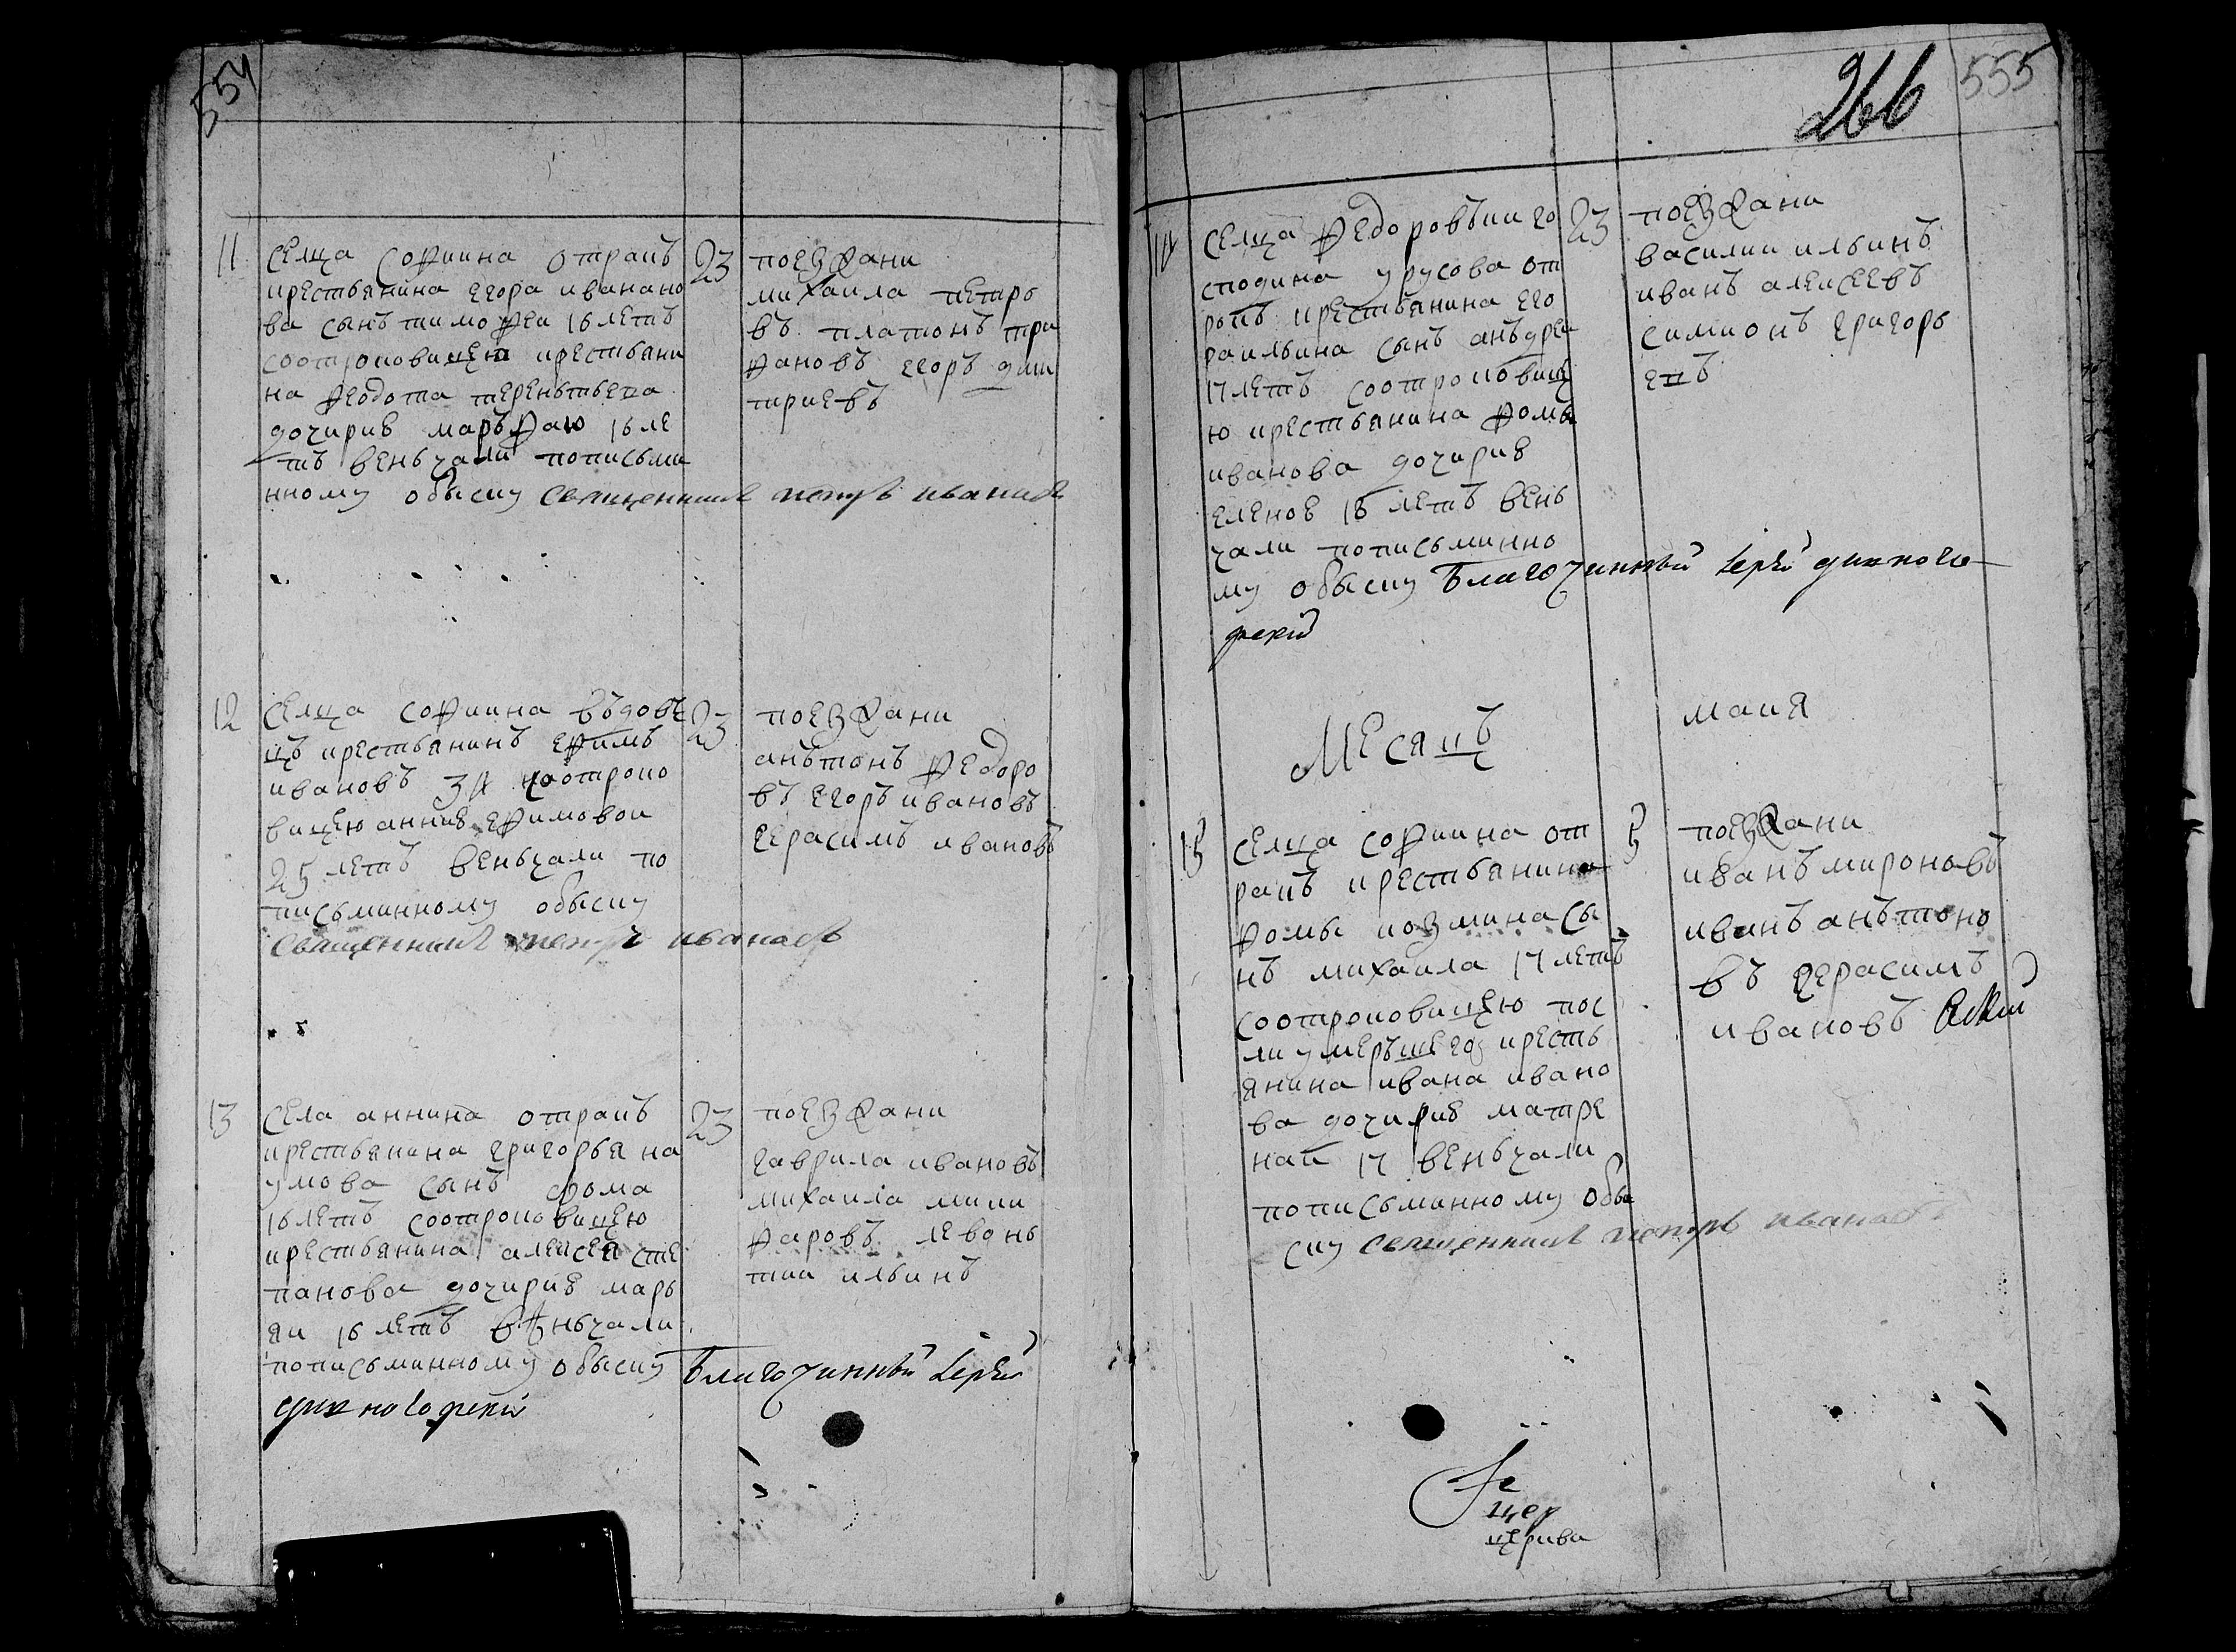 554
11
селца софиина отракъ
крестьянина егора ивано
ва сынъ тимофеи 16 летъ
соотроковицею крестьяни
на федота терентьева
дочирию марьфаю 16 ле
тъ веньчали пописьми
нному обыску священникъ петръ ивановъ
23
поезжани
михаила петро
въ платонъ три
фановъ егоръ дми
триевъ
12
селца софиина въдове
цъ крестьянинъ ефимъ
ивановъ 34 соотроко
вицею анниѣ ефимовои
25 летъ веньчали по
письминному обыску
священникъ петръ ивановъ
23
поезжани
анътонъ федоро
въ егоръ ивановъ
герасимъ ивановъ
13
села аннина отракъ
крестьянина григорья на
умова сынъ фома
16 летъ соотроковицею
крестьянина алексея сте
панова дочириѣ марь
яи 16 летъ веньчали
пописьминному обыску Благочинный Iерей
23
поезжани
гаврила ивановъ
михаила ники
фаровъ левонь
тии ильинъ
266 555
14
селца федоровъки го
сподина урусова от
рокъ крестьянина его
ра ильина сынъ анъдреи
17 летъ соотроковиц
ю крестьянина фомы
иванова дочириѣ
еленоѣ 18 летъ вень
чали пописьминно
му обыску Благочинный Iерей
23
поезжани
василии ильинъ
иванъ алексеевъ
симионъ григорь
евъ
Месяцъ маия
15
селца софиина от
ракъ крестьянина
фомы козмина сы
нъ михаила 17 летъ
соотроковицею пос
ли умеръшего кресть
янина ивана ивано
ва дочириѣ матре
наи 17 веньчали
пописьминному обы
ску священникъ петръ ивановъ
5
поезжани
иванъ мироновъ
иванъ анътоно
въ герасимъ
ивановъ
цер
церква